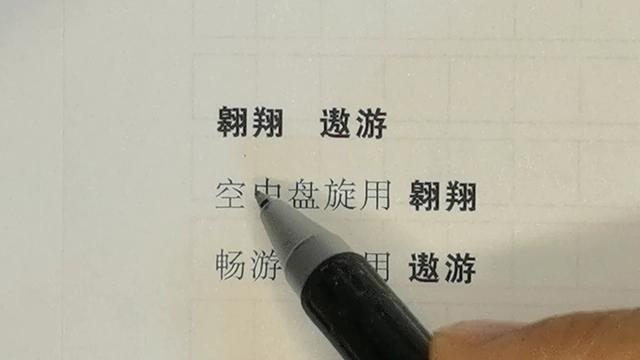 翱翔 遨游
空中盘旋用 翱翔
畅游 用 遨游